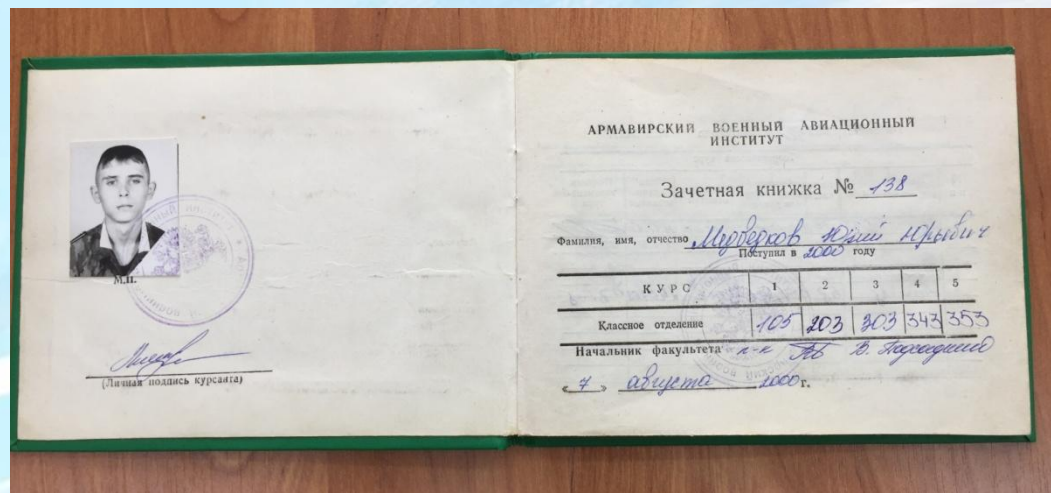 М.П.
(Личная подпись курсанта)
АРМАВИРСКИЙ ВОЕННЫЙ АВИАЦИОННЫЙ
ИНСТИТУТ
Зачетная книжка № 138
Фамилия, имя, отчество Медведков Юрьевич
Поступил в 2000 году
КУРС 1 2 3 4 5
Классное отделение 105 203 303 343 353
Начальник факультета п-к В.
« 7 » августа 2000 г.